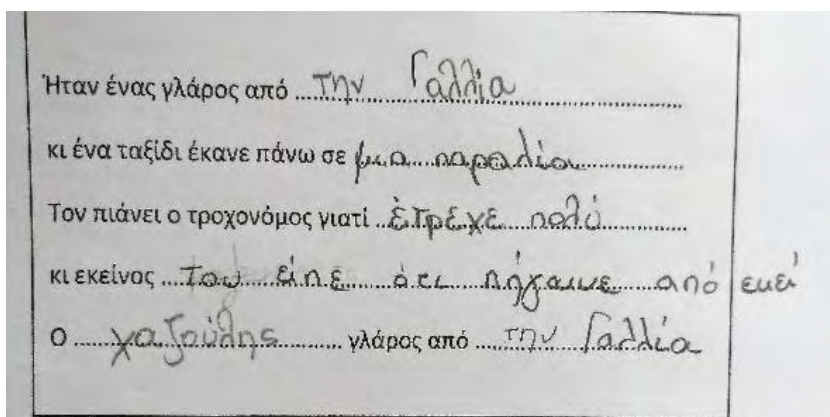 Ήταν ένας γλάρος από την Γαλλία
κι ένα ταξίδι έκανε πάνω σε μια παραλία
Τον πιάνει ο τροχονόμος γιατί έτρεχε πολύ
κι εκείνος του είπε ότι πήγαινε από εκεί
Ο χαζούλης γλάρος από την Γαλλία